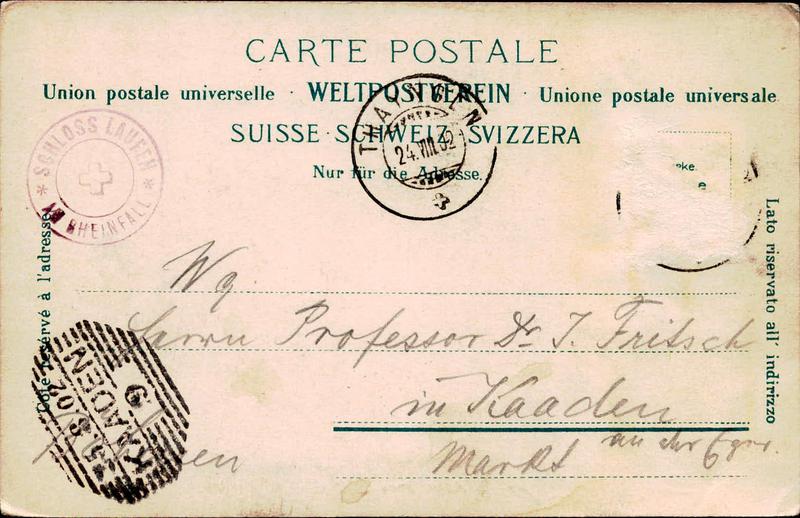 CARTE POSTALE
Union postale universelle · WELTPOSTVEREIN · Unione postale universale
SUISSE · SCHWEIZ · SVIZZERA
Nur für die Adresse.
THAYNGEN
24.VIII.02
SCHLOSS LAUFEN
AM RHEINFALL
Côté réservé à l'adresse
Lato riservato all' indirizzo
Herrn Professor Dr J. Fritsch
in Kaaden
an der Eger.
Markt
KAADEN